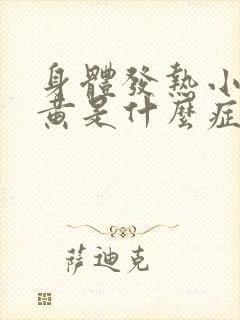 身體發熱小
黃是什麼症
薩迪克